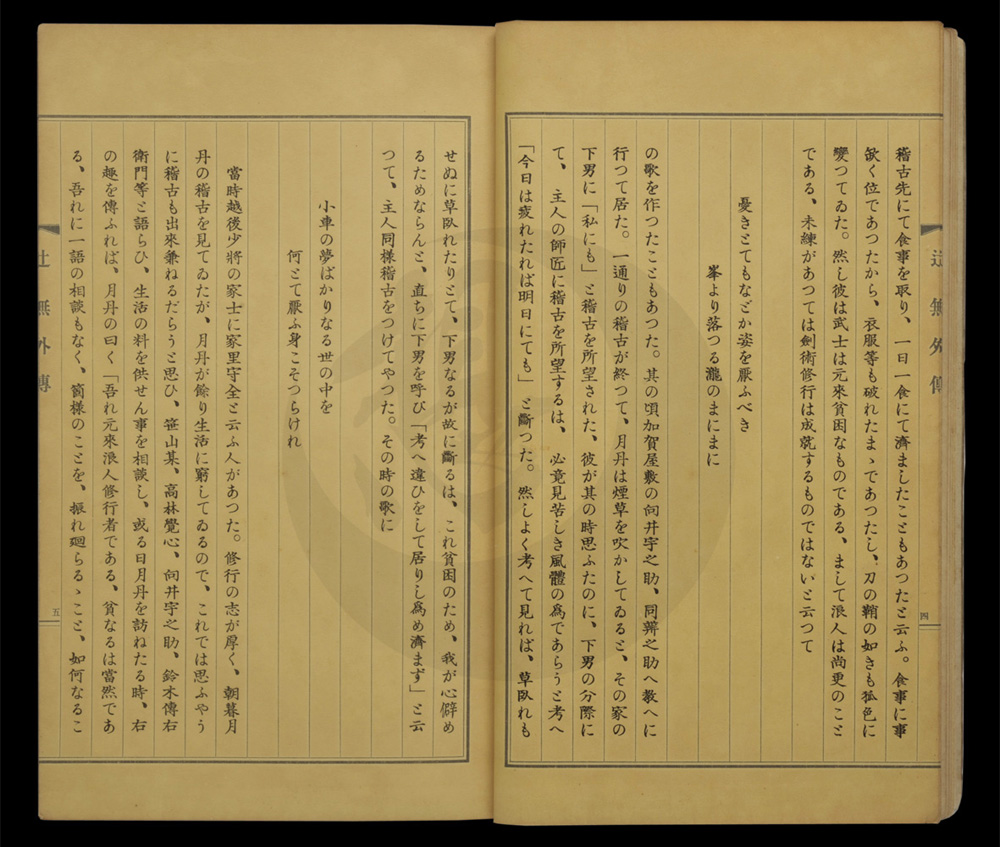 稽古先にて食事を取り、一日一食にて濟ましたこともあつたと云ふ。食事に事
欲く位であつたから、衣服等も破れたまゝであつたし、刀の鞘の如きも狐色に
變つてゐた。然し彼は武士は元來貧困なものである、まして浪人は尚更のこと
である、未練があつては劍術修行は成就するものではないと云つて
憂きとてもなどか姿を厭ふべき
峯より落つる瀧のまにまに
の歌を作つたこともあつた。其の頃加賀屋敷の向井字之助、同辨之助へ教へに
行つて居た。一通りの稽古が終つて、月丹は煙草を吹かしてゐると、その家の
下男に「私にも」と稽古を所望された、彼が其の時思ふたのに、下男の分際に
て、主人の師匠に稽古を所望するは、必竟見苦しき風體の爲であらうと考へ
「今日は疲れたれば明日にても」と斷つた。然しよく考へて見れば、草臥れも
辻無外傳
四
せぬに草臥れたりとて、下男なるが故に斷るは、これ貧困のため、我が心僻め
るためならんと、直ちに下男を呼び「考へ違ひをして居りし爲め濟まず」と云
つて、主人同様稽古をつけてやつた。その時の歌に
小車の夢ばかりなる世の中を
何とて厭ふ身こそつらけれ
當時越後少將の家士に家里守全と云ふ人があつた。修行の志が厚く、朝暮月
丹の稽古を見てゐたが、月丹が餘り生活に窮してゐるので、これでは思ふやう
に稽古も出來兼ねるだらうと思ひ、笹山某、高林覺心、向井字之助、鈴木傳右
衛門等と語らひ、生活の料を供せん事を相談し、或る日月丹を訪ねたる時、右
の趣を傳ふれば、月丹の曰く「吾れ元來浪人修行者である、貧なるは當然であ
る、吾れに一語の相談もなく、箇様のことを、振れ廻らるゝこと、如何なるこ
辻無外傳
五